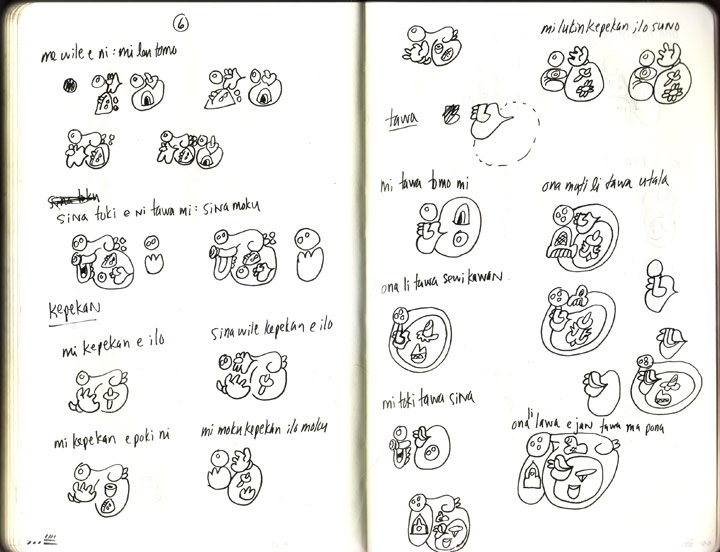 6
mi wile e ni : mi lon tomo
sina toki e ni tawa mi : sina moku
kepekan
mi kepekan e ilo
sina wile kepekan e ilo
mi kepekan e poki ni
mi moku kepekan ilo moku
mi lukin kepekan ilo suno
tawa
mi tawa tomo mi
ona muti li tawa utala
ona li tawa sewi kawan
mi toki tawa sina
ona li lawa e jan tawa ma pona